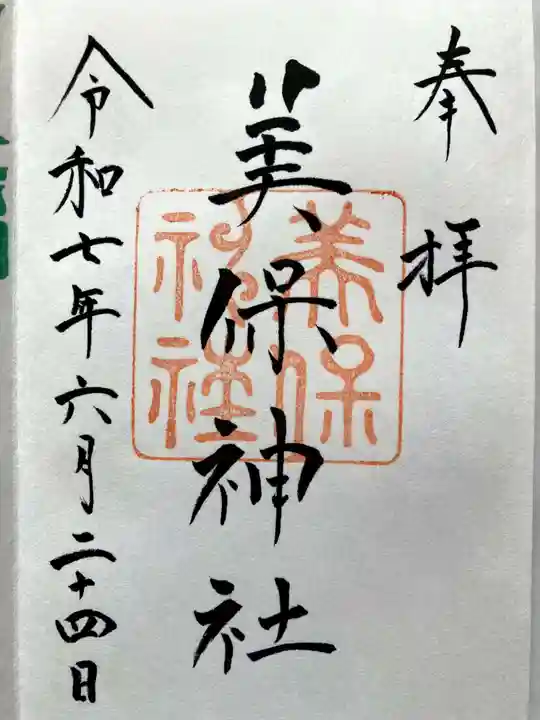 奉拝
美保神社
美保
神社
令和七年六月二十四日